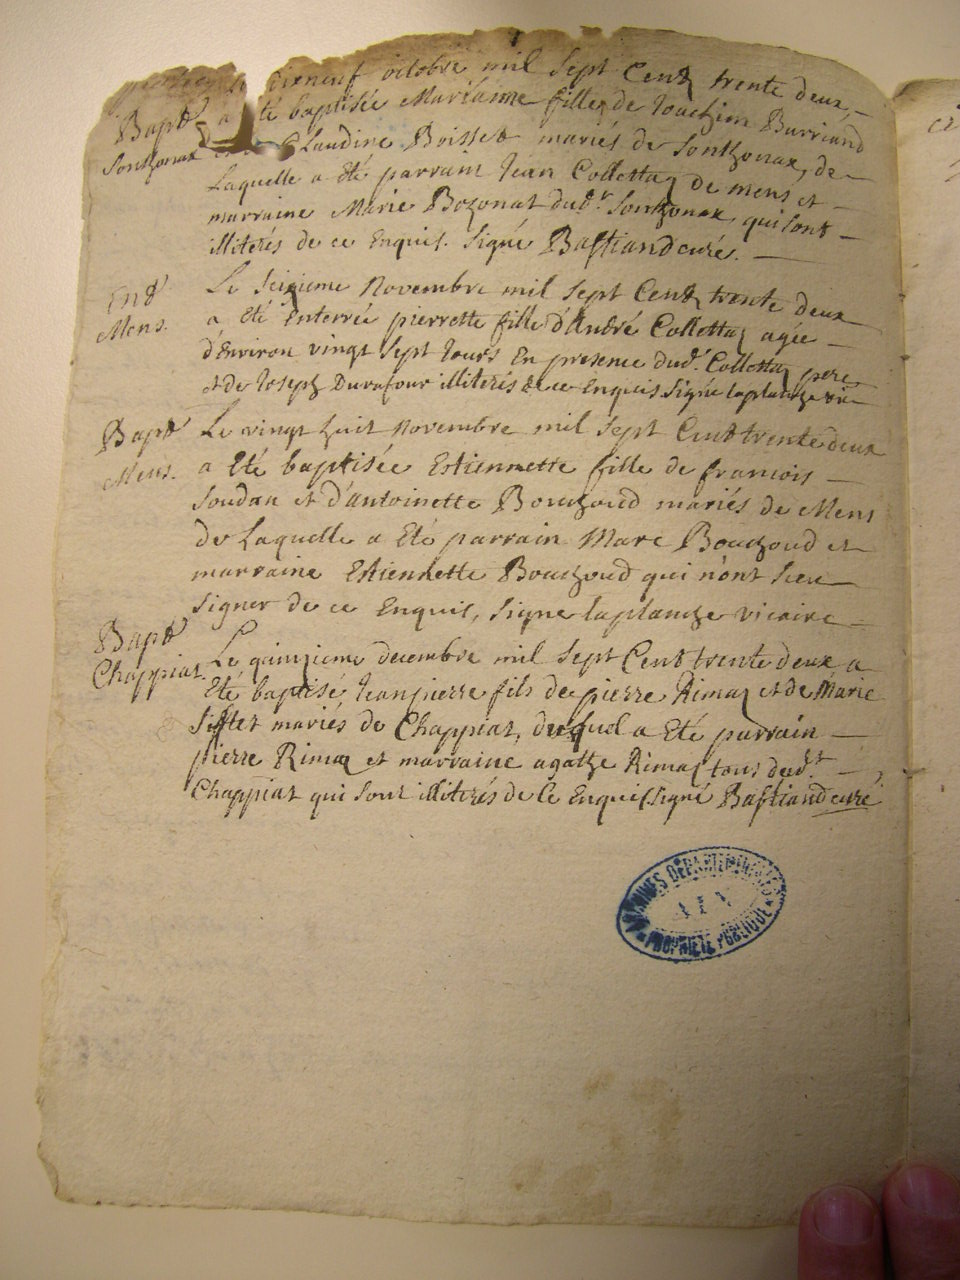 dixneuf octobre mil sept Cent trente deux,
Bapt a été baptisée Marianne fille de Joachim Burriand
Sonthonax Claudine Boisset mariés de Sonthonax, de
Laquelle a été parrain Jean Collettaz de mens et
marraine Marie Bozonat dud.t Sonthonax qui sont
illiterés de ce Enquis. Signé Bastiand curé.
Ent Le Seizieme Novembre mil Sept Cent trente deux
Mens. a Eté Enterrée pierrette fille d'André Collettaz agée
d'Environ vingt Sept Jours En presence dud.t Collettaz pere
et de Joseph Durafour illiterés de ce Enquis signé laplanche vic
Bapt Le vingt huit Novembre mil Sept Cent trente deux
Mens. a Eté baptisée Estiennette fille de francois
Soudan et d'antoinette Bouchoud mariés de Mens
de Laquelle a Eté parrain Marc Bouchoud et
marraine Estiennette Bouchoud qui n'ont sceu
Signer de ce Enquis, Signé laplanche vicaire
Bapt
Chappiat. Le quinzieme decembre mil Sept Cent trente deux a
Eté baptisé Jeanpierre fils de pierre Rimaz et de Marie
mariés de Chappiat, duquel a Eté parrain
pierre Rimaz et marraine agathe Rimaz tous dud.t
Chappiat qui sont illiterés de ce Enquis signé Bastiand curé
ARCHIVES DÉPARTEMENTALES
AIN
PROPRIÉTÉ PUBLIQUE